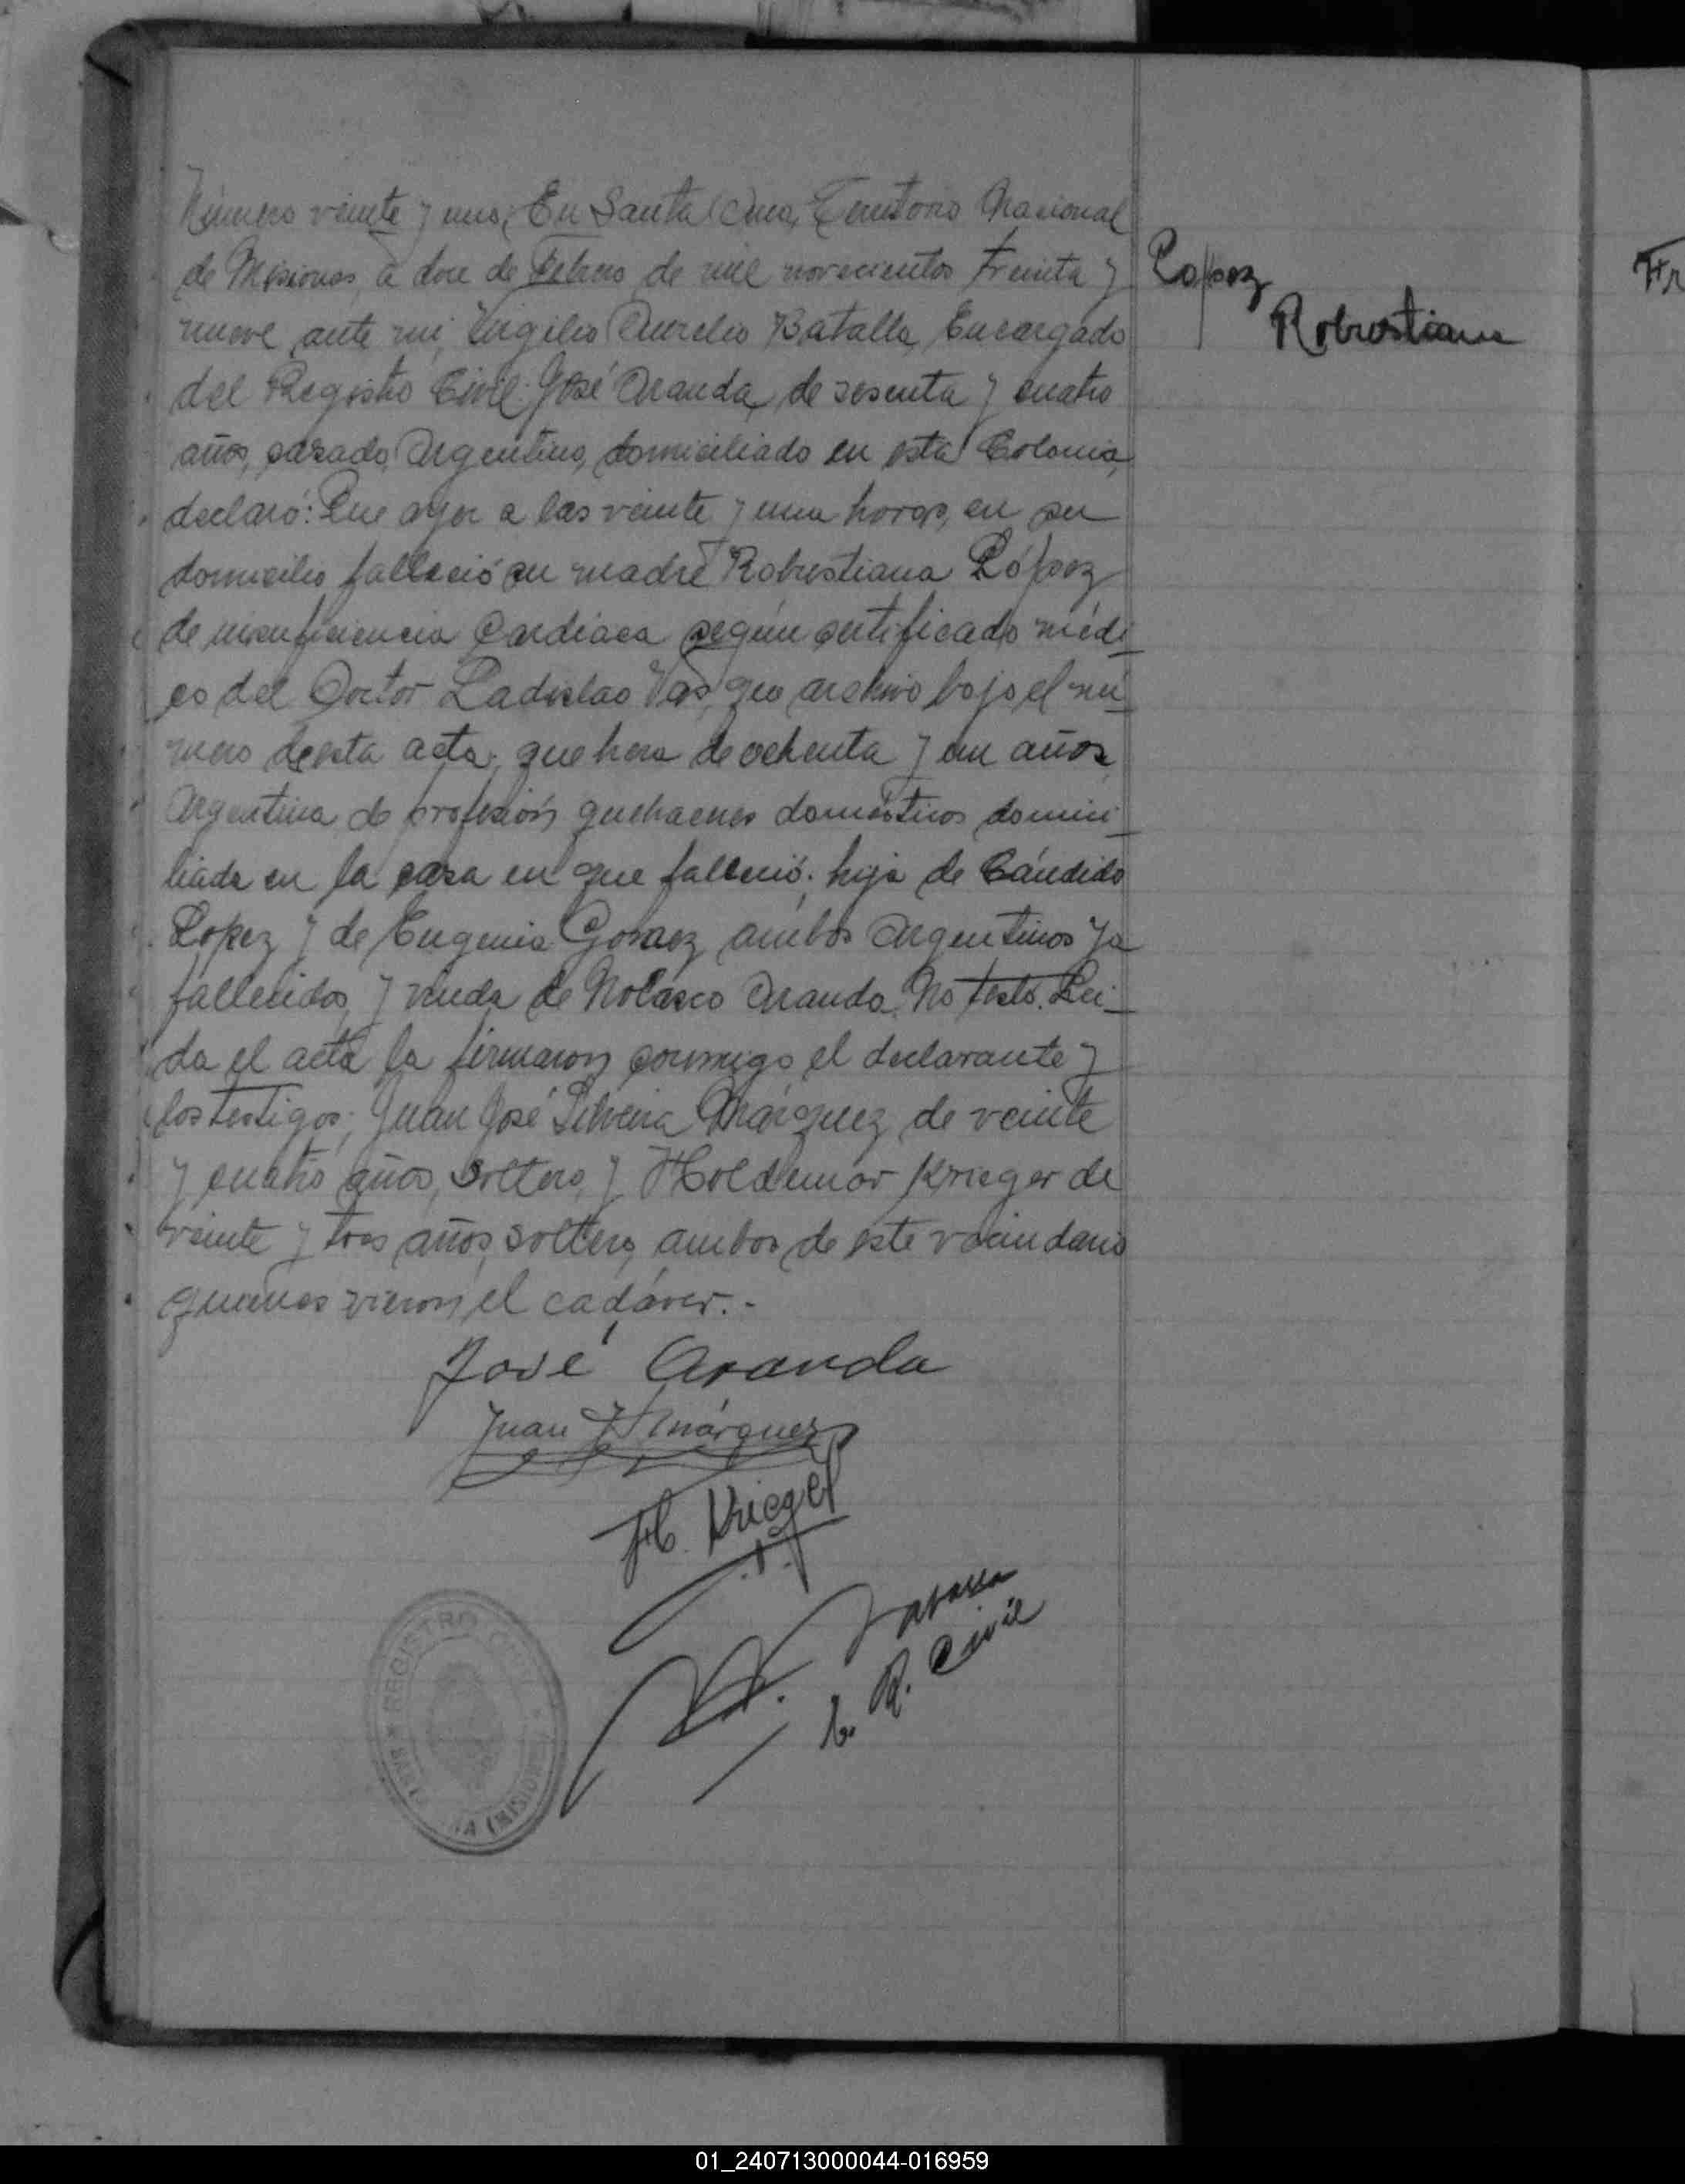 Número veinte y uno. En Santa Ana, Territorio Nacional
de Misiones, a doce de Febrero de mil novecientos treinta y
nueve, ante mi, Virgilio Aurelio Batalla, Encargado
del Registro Civil: José Aranda, de sesenta y cuatro
años, casado, Argentino, domiciliado en esta Colonia,
declaró: Que ayer a las veinte y una horas, en su
domicilio falleció su madre Robustiana López
de insuficiencia Cardiaca según certificado médi-
co del Doctor Ladislao que archivo bajo el nú-
mero de esta acta; que hera de ochenta y un años,
Argentina, de profesión quehaceres domésticos domici-
liada en la casa en que falleció; hija de Cándido
Lopez y de Eugenia ambos Argentinos ya
fallecidos, y viuda de Nolasco Aranda. No testó. Lei-
da el acta la firmaron conmigo el declarante y
los testigos; Juan José Silveira Márquez, de veinte
y cuatro años, soltero, y Holdemar Krieger de
veinte y tres años, soltero, ambos de este vecindario
quienes vieron el cadáver.-
Lopez
Robustiana
Fr
José Aranda
Juan J Márquez
H. Krieger
Batalla
E. R. Civil
REGISTRO
(MISIONES)
01_240713000044-016959